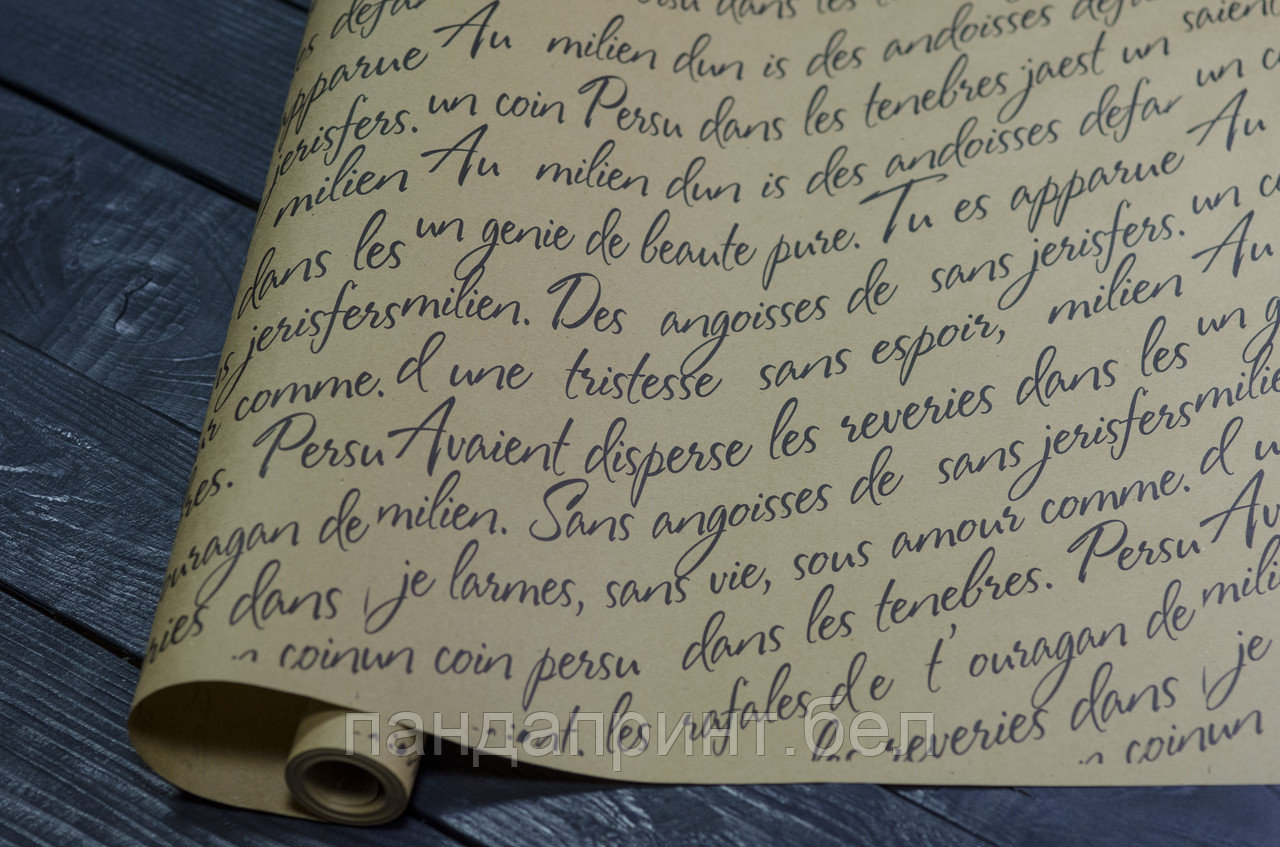 dans les
defar
apparue Au milien dun is des andoisses defar
jerisfers. un coin Persu dans les tenebres jaest un saient
milien Au milien dun is des andoisses defar un c
dans les un genie de beaute pure. Tu es apparue Au
jerisfersmilien. Des angoisses de sans jerisfers. un c
comme. d une tristesse sans espoir, milien Au
res. Persu Avaient disperse les reveries dans les un g
ouragan de milien. Sans angoisses de sans jerisfersmilie
ries dans je larmes, sans vie, sous amour comme. d u
coinun coin persu dans les tenebres. Persu Av
les rafales de t' ouragan de mili
les reveries dans je
coinun
пандапринт.бел